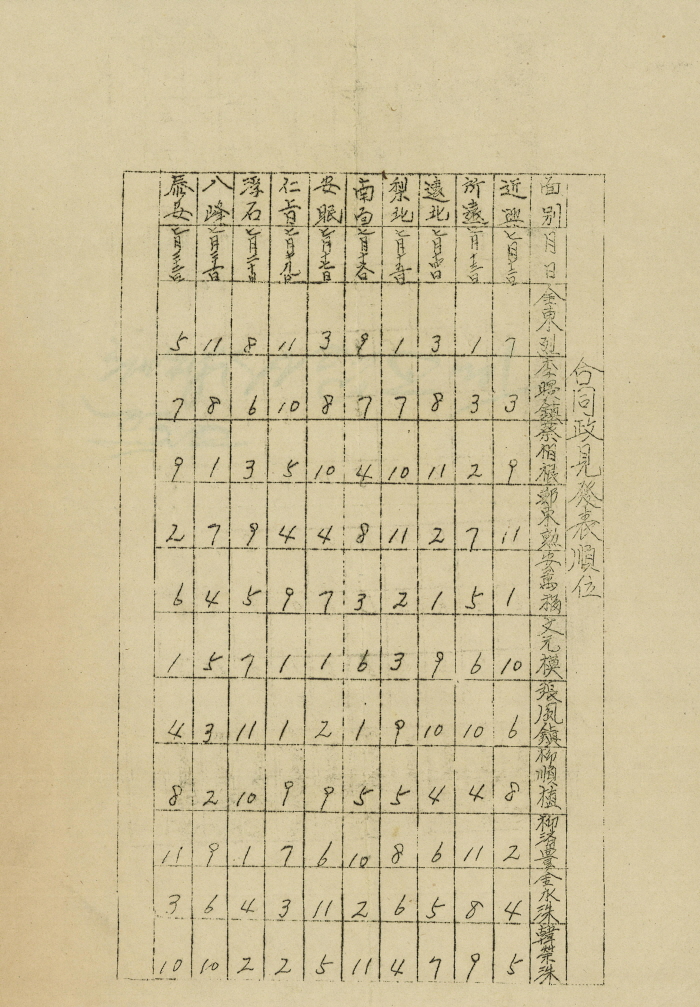 合同政見發表順位
面別 月日 金東烈 李鎭 蔡伯根 鄭東勳 安萬福 文元模 張鳳鎭 柳順植 柳豊 金永珠 韓榮珠
近興 七月十二日 7 3 9 11 1 10 6 8 2 4 5
所遠 七月十三日 1 3 2 7 5 6 10 4 11 8 9
遠北 七月十四日 3 8 11 2 1 9 10 4 6 5 7
梨北 七月十五日 1 7 10 11 2 3 9 5 8 6 4
南面 七月十六日 9 7 4 8 3 6 1 5 10 2 11
安眠 七月十七日 3 8 10 4 7 1 2 9 6 11 5
仁旨 七月十九日 11 10 5 4 9 1 1 9 7 3 2
浮石 七月二十日 8 6 3 9 5 7 11 10 1 4 2
八峰 七月 11 8 1 7 4 5 3 2 9 6 10
泰安 七月 5 7 9 2 6 1 4 8 11 3 10